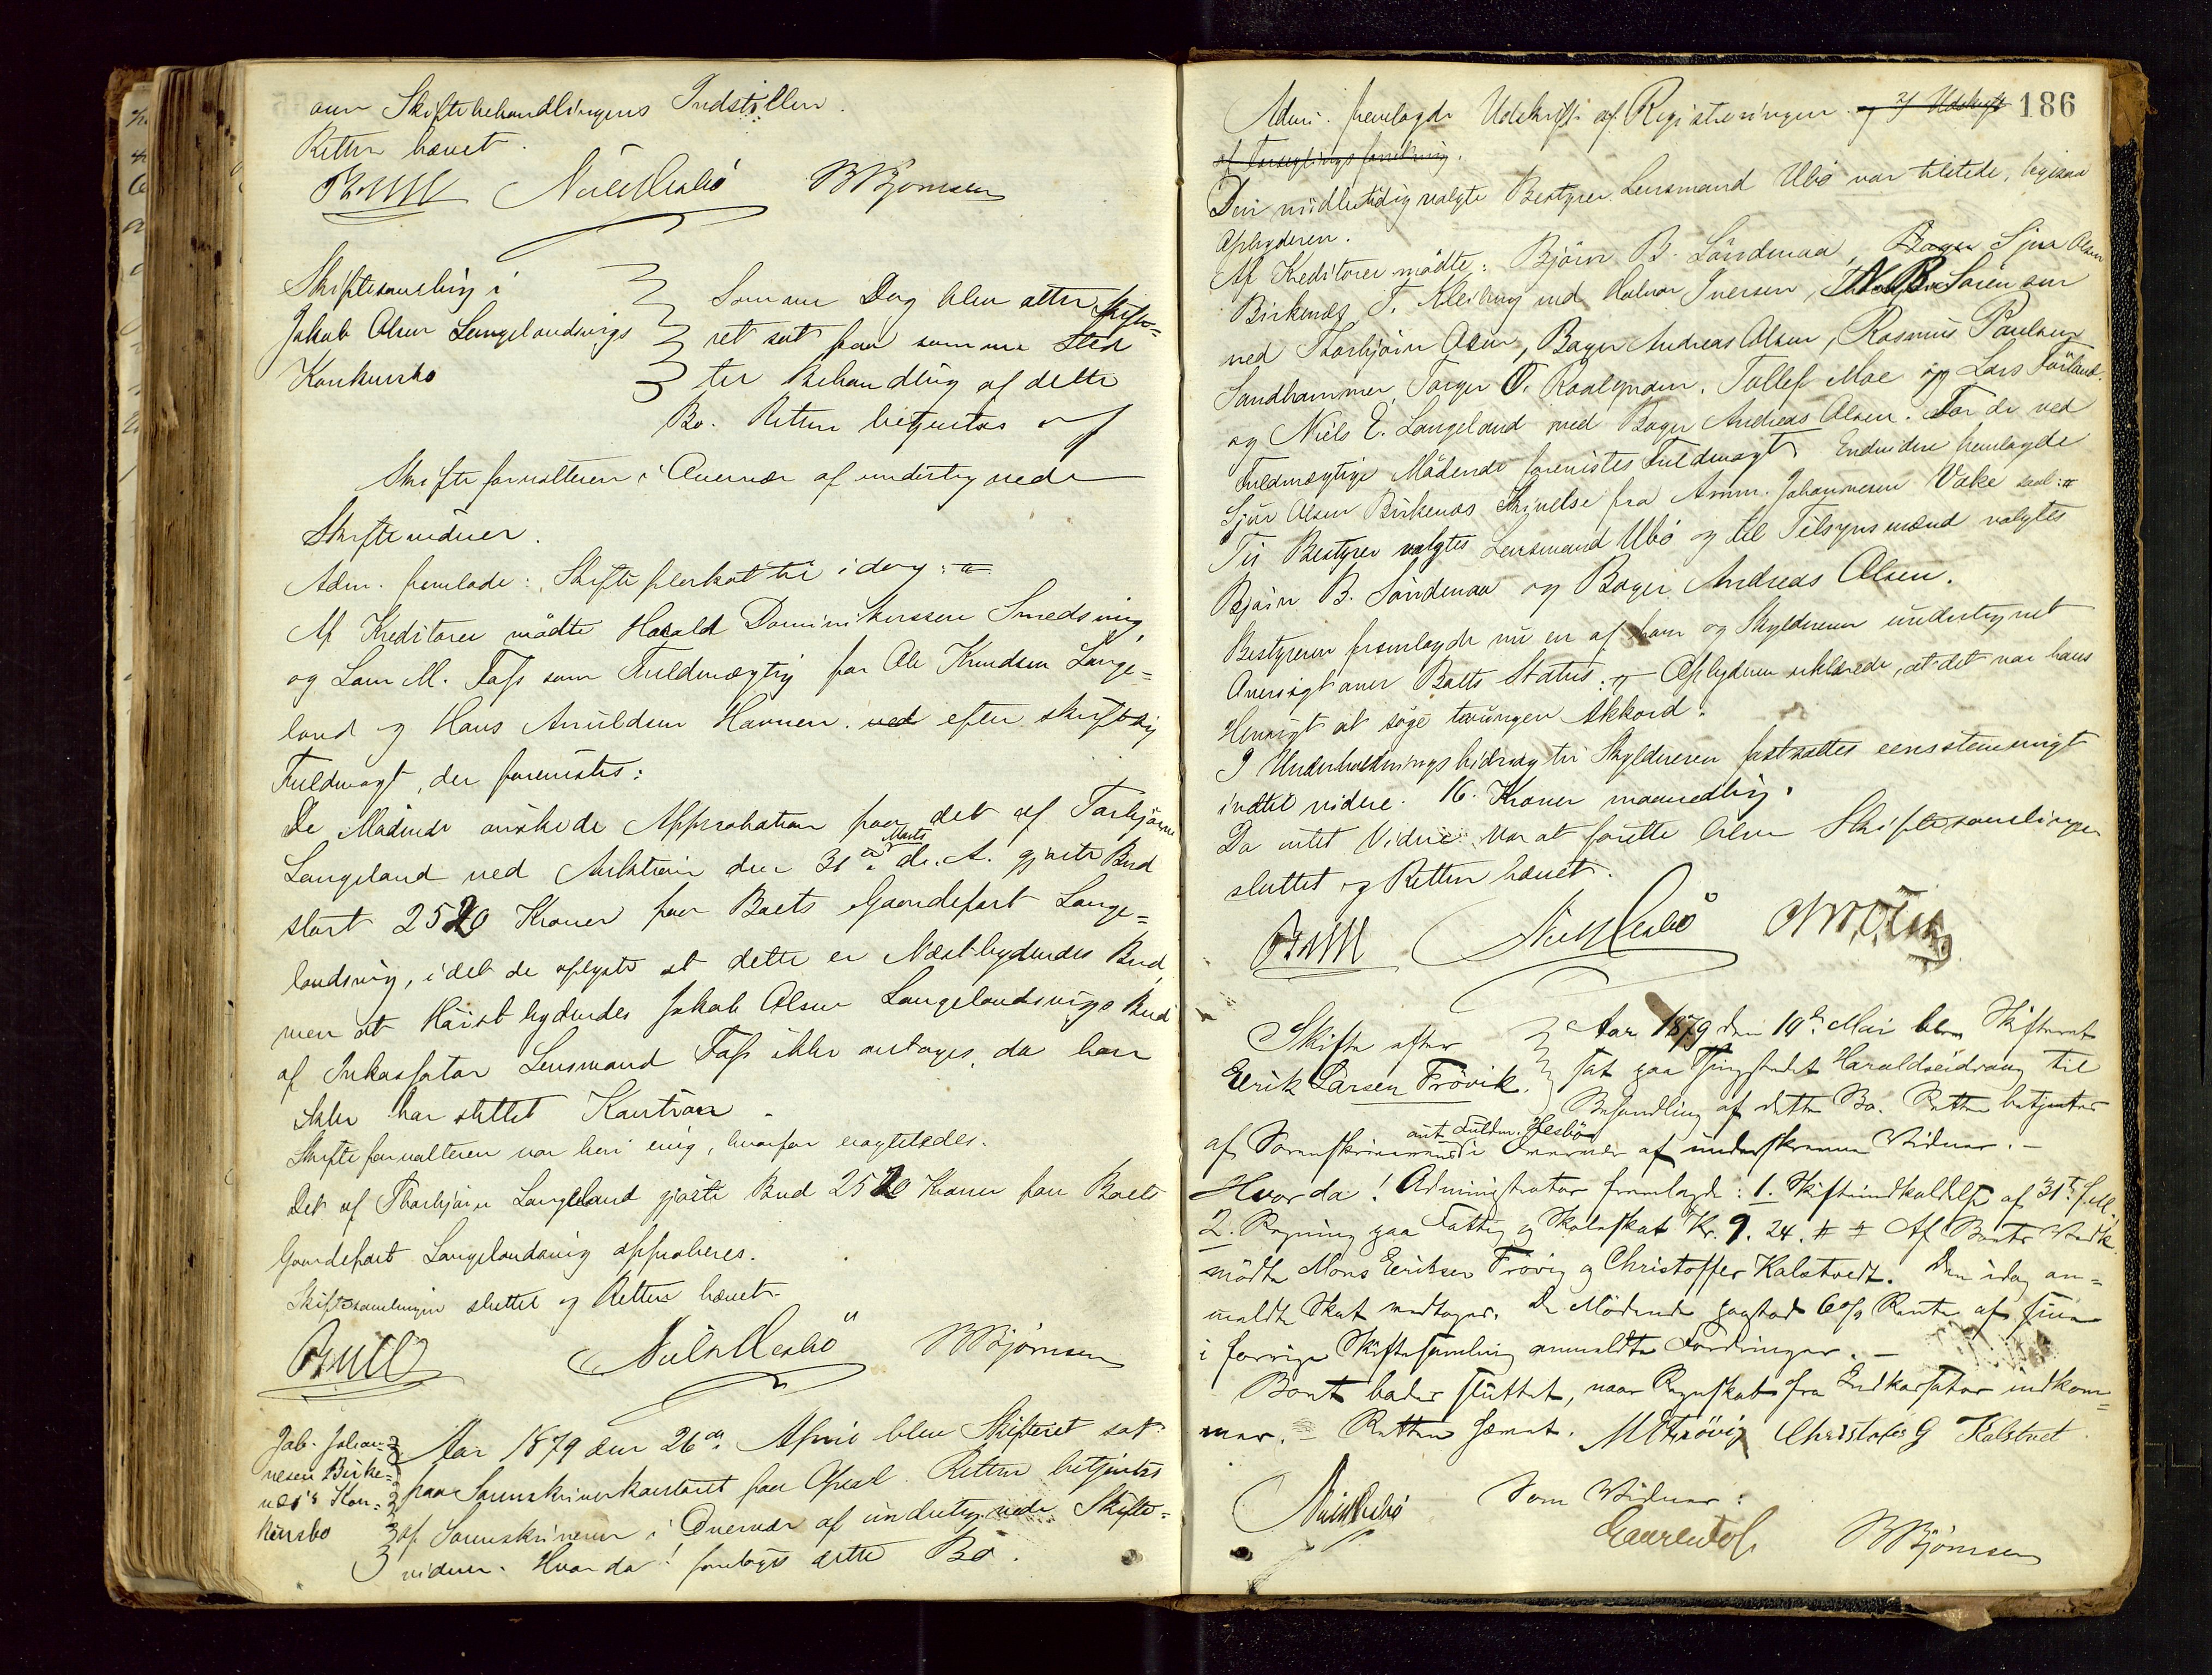 om Skiftebehandlingens Indstillen.
Retten hævet.
Niels Nesbö BBjörnsen
Skiftesamling i
Jakob Olsen Langelandsvigs
Konkursbo
Samme Dag blev atter skifte=
ret sat paa samme Sted
til Behandling af dette
Bo. Retten betjentes af
Skifteforvalteren i Overvær af undertegnede
Skiftevidner.
Adm. fremlagde: Skifteplakat til idag:
Af Kreditorer mödte Harald Dominikussen Smedsvig
og Lars M. Fass som Fuldmægtig for Ole Knudsen Lange=
land og Hans Amundsen Havnen. ved efter skriftlig
Fuldmagt, der forevistes:
De Mödende önskede Approbation paa det af Torbjörn
Langeland ved Auktion den 31te Marts d. A. gjorte Bud
stort 2520 Kroner for Boets Gaardepart Lange=
landsvig, idet de oplyste at dette er Næstbydendes Bud,
men at Höistbydendes Jakob Olsen Langelandsvigs Bud
af Inkassator Lensmand Fass ikke antoges, da han
ikke har stillet Kaution.
Skifteforvalteren var heri enig, hvorfor eragtedes.
Det af Thorbjörn Langeland gjorte Bud 2520 Kroner for Boets
Gaardepart Langelandsvig approberes.
Skiftesamlingen sluttet og Retten hævet.
Niels Nesbö BBjörnsen
Jab. Johan=
nesen Birke=
næs's Kon=
kursbo
Aar 1879 den 26de April blev Skifteret sat
paa Sorenskriverkontoret paa Opsal. Retten betjentes
af Sorenskriveren i Overvær af undertegnede Skifte=
vidner. Hvor da! foretoges dette Bo.
186
Adm. fremlagde Udskrift af Registreringen og 2/ Udskrift
af Forseglingsforretning.
Den midlertidig valgte Bestyrer Lensmand Ubö var tilstede, ligesaa
Opbyderen.
Af Kreditorer mödte: Björn B. Söndenaa, Bager Sjur Olsen
Birkenæs, T. Kleiberg ved Halvor Iversen, N. B. Sörensen
ved Thorbjörn Olsen, Bager Andreas Olsen, Rasmus Paulsen
Sandhammer, Torger O. Tollef Moe og Lars Förland.
og Niels E. Langeland med Bager Andreas Olsen. For de ved
Fuldmægtige Mödende forevistes Fuldmagt. Endvidere fremlagde
Sjur Olsen Birkenæs Skrivelse fra Amm. Johannesen Vake
Til Bestyrer valgtes Lensmand Ubö og til Tilsynsmænd valgtes
Björn B. Söndenaa og Bager Andreas Olsen.
Bestyreren fremlagde nu en af ham og Skyldneren undertegnet
Oversigt over Boets Status: Opbyderen erklærede, at det var hans
Hensigt at söge tvungen Akkord.
I Underholdningsbidrag til Skyldneren fastsattes eensstemmigt
indtil videre. 16. Kroner maanedlig.
Da intet Videre var at forette blev Skiftesamlingen
sluttet og Retten hævet.
Niels Nesbö
Skifte efter
Eerik Larsen Frövik.
Aar 1879 den 14de Mai blev Skifteret
sat paa Thingstedet Haraldseidvaag til
Behandling af dette Bo. Retten betjentes
af Sorenskriverens aut. Fuldm. Nesbö i Overvær af underskrevne Vidner.—
Hvor da! Administrator fremlagde: 1. Skifteindkaldelse af 31te f. M.
2. Regning paa Fattig og Skoleskat Kr. 9. 24. # # Af Boets Vedk.
mödte Mons Eeriksen Frövig og Christoffer Kalstvedt. Den idag an=
meldte Skat vedtages. De Mödende paastod 6 o/o Rente af sine
i forrige Skiftesamling anmeldte Fordringer.—
Boet bades sluttet, naar Regnskab fra Indkassator indkom=
mer.— Retten hævet. M E Frövig Christofer G Kalstvet
Niels Nesbö
Som Vidner:
BBjörnsen